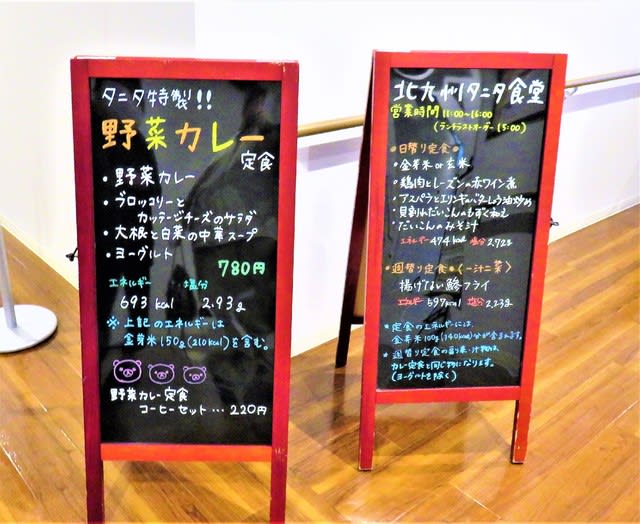 タニタ特製!!
野菜カレー
定食
・野菜カレー
・ブロッコリーと
カッテージチーズのサラダ
・大根と白菜の中華スープ
・ヨーグルト
780円
エネルギー 塩分
693 kcal 2.93g
※上記のエネルギーは
金芽米150g(210kcal)を含む。
野菜カレー定食
コーヒーセット…220円
北九州タニタ食堂
営業時間 11:00〜16:00
(ランチラストオーダー 15:00)
日替り定食
・金芽米 or 玄米
・鶏肉とレーズンの赤ワイン煮
・アスパラとエリンギのバターしょう油炒め
・貝割れだいこんのもずく和え
・だいこんのみそ汁
エネルギー 474kcal 塩分 2.72g
週替り定食 〈一汁二菜〉
揚げてない鯵フライ
エネルギー 597kcal 塩分 2.23g
定食のエネルギーには、
金芽米100g(140kcal)分が含まれます。
週替り定食の副菜・汁物は、
カレー定食と同じ物になります。
(ヨーグルトを除く)